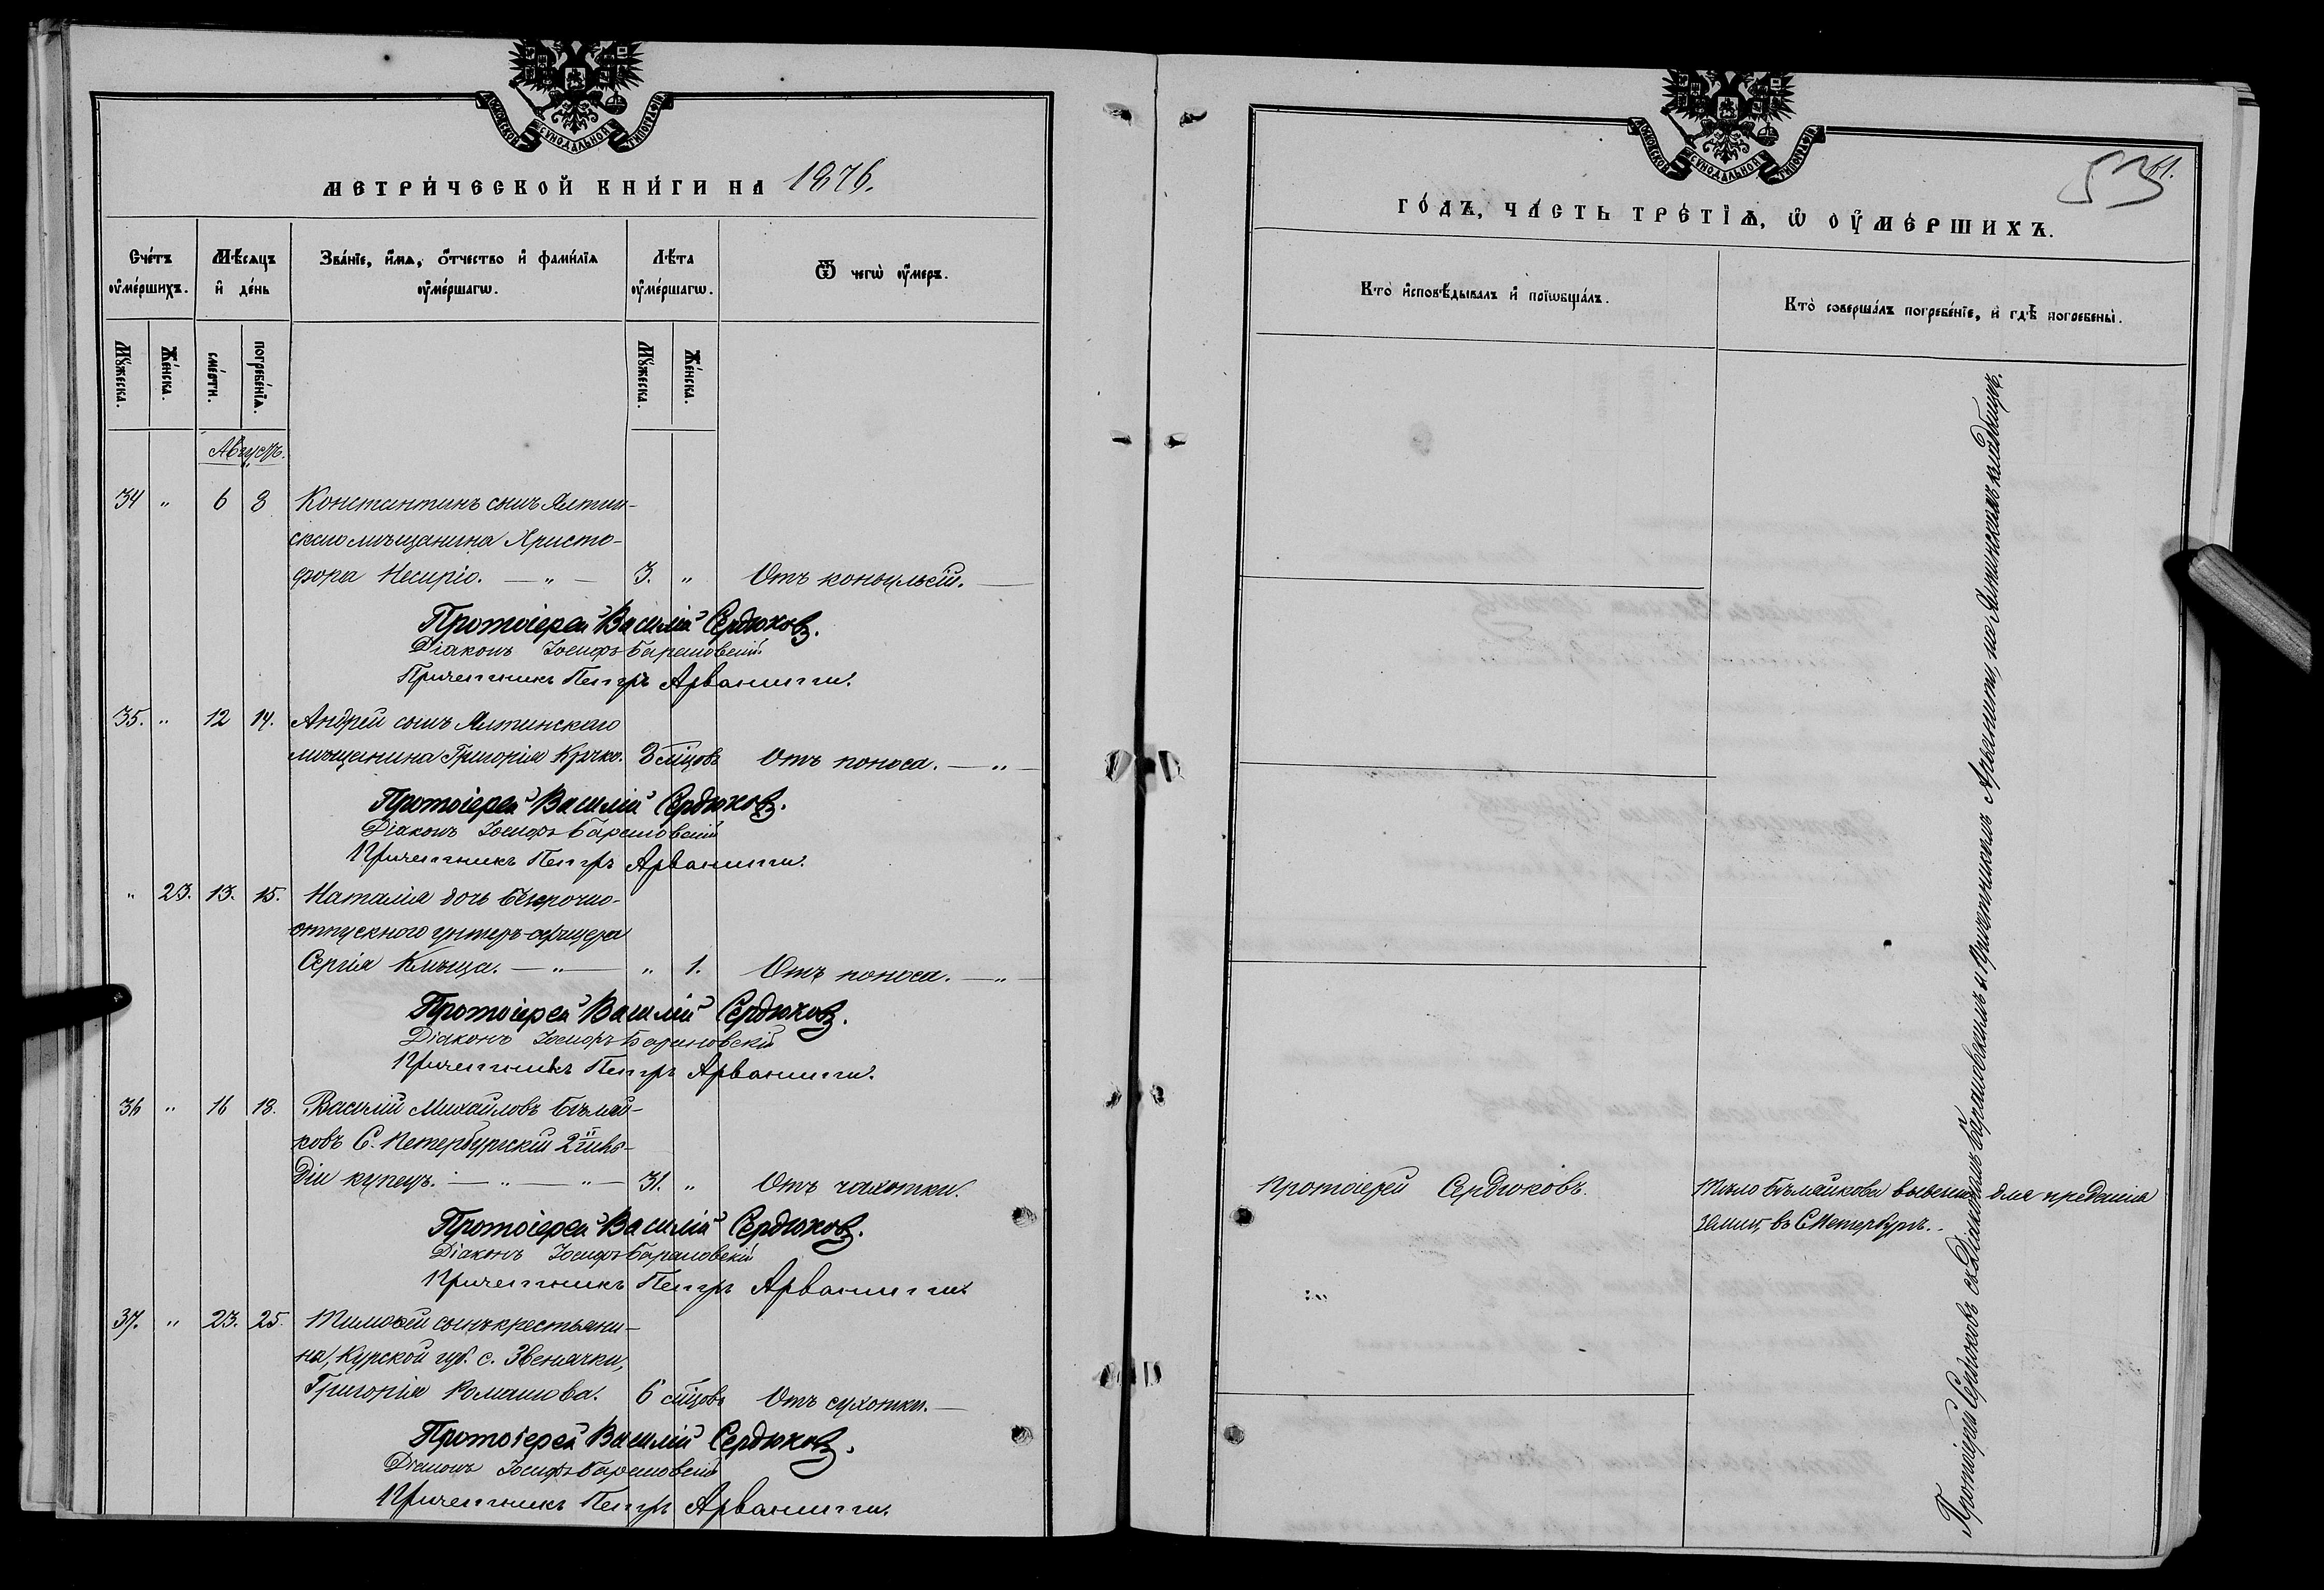 МОСКОВСКОЙ СѴНОДАЛЬНОЙ ТИПОГРАФІИ
МЕТРИ́ЧЕСКОЙ КНИ́ГИ НА 1876.
Сче́тъ ᲂу҆ме́ршихъ.
Мѣ́сяцъ и҆ де́нь
Зва́нїе, и҆́мѧ, ѻ҆́тчество и҆ фами́лїѧ ᲂу҆ме́ршагѡ.
Лѣ́та ᲂу҆ме́ршагѡ.
Ѿ чегѡ̀ ᲂу҆́меръ.
Мꙋ́жеска.
Же́нска.
сме́рти.
погребе́нїѧ.
Мꙋ́жеска.
Же́нска.
Августъ.
34 " 6 8 Константинъ сынъ Ялтин-
скаго мѣщанина Христо-
фора Несиріо. — " — 3. " Отъ конвульсій. —
Протоіерей Василій Сердюковъ.
Діаконъ Іосифъ Барановскій
Причетникъ Петръ Арванити.
35. " 12 14. Андрей сынъ Ялтинскаго
мѣщанина Григорія Крачко. 3 мѣцовъ Отъ поноса. — " —
Протоіерей Василій Сердюковъ.
Діаконъ Іосифъ Барановскій
Причетникъ Петръ Арванити.
" 23. 13. 15. Наталія дочь безсрочно-
отпускного унтеръ-офицера
Сергія Клѣща. — " — " 1. Отъ поноса. — " —
Протоіерей Василій Сердюковъ.
Діаконъ Іосифъ Барановскій
Причетникъ Петръ Арванити.
36 " 16 18. Василій Михайловъ Бѣлай-
ковъ С. Петербургскій 2й гиль-
діи купецъ. — " — " — 31. " Отъ чахотки.
Протоіерей Василій Сердюковъ.
Діаконъ Іосифъ Барановскій
Причетникъ Петръ Арванити.
37. " 23. 25. Тимофей сынъ крестьяни-
на, Курской губ. с. Звенячки,
Григорія Романова. 6 мѣцовъ Отъ сухотки. —
Протоіерей Василій Сердюковъ.
Діаконъ Іосифъ Барановскій
Причетникъ Петръ Арванити.
МОСКОВСКОЙ СѴНОДАЛЬНОЙ ТИПОГРАФІИ
53 61.
ГО́ДЪ, ЧА́СТЬ ТРЕ́ТЇѦ, Ѡ҆ ᲂУ҆МЕ́РШИХЪ.
Кто̀ и҆сповѣ́дывалъ и҆ прїѡбща́лъ.
Кто̀ соверша́лъ погребе́нїе, и҆ гдѣ̀ погребены̀.
Протоіерей Сердюковъ.
Тѣло Бѣлайкова вывезено для преданія
землѣ, въ С Петербургъ.
Протоіерей Сердюковъ съ Діакономъ Барановскимъ и Причетникомъ Арванити, на Ялтинскомъ кладбищѣ.